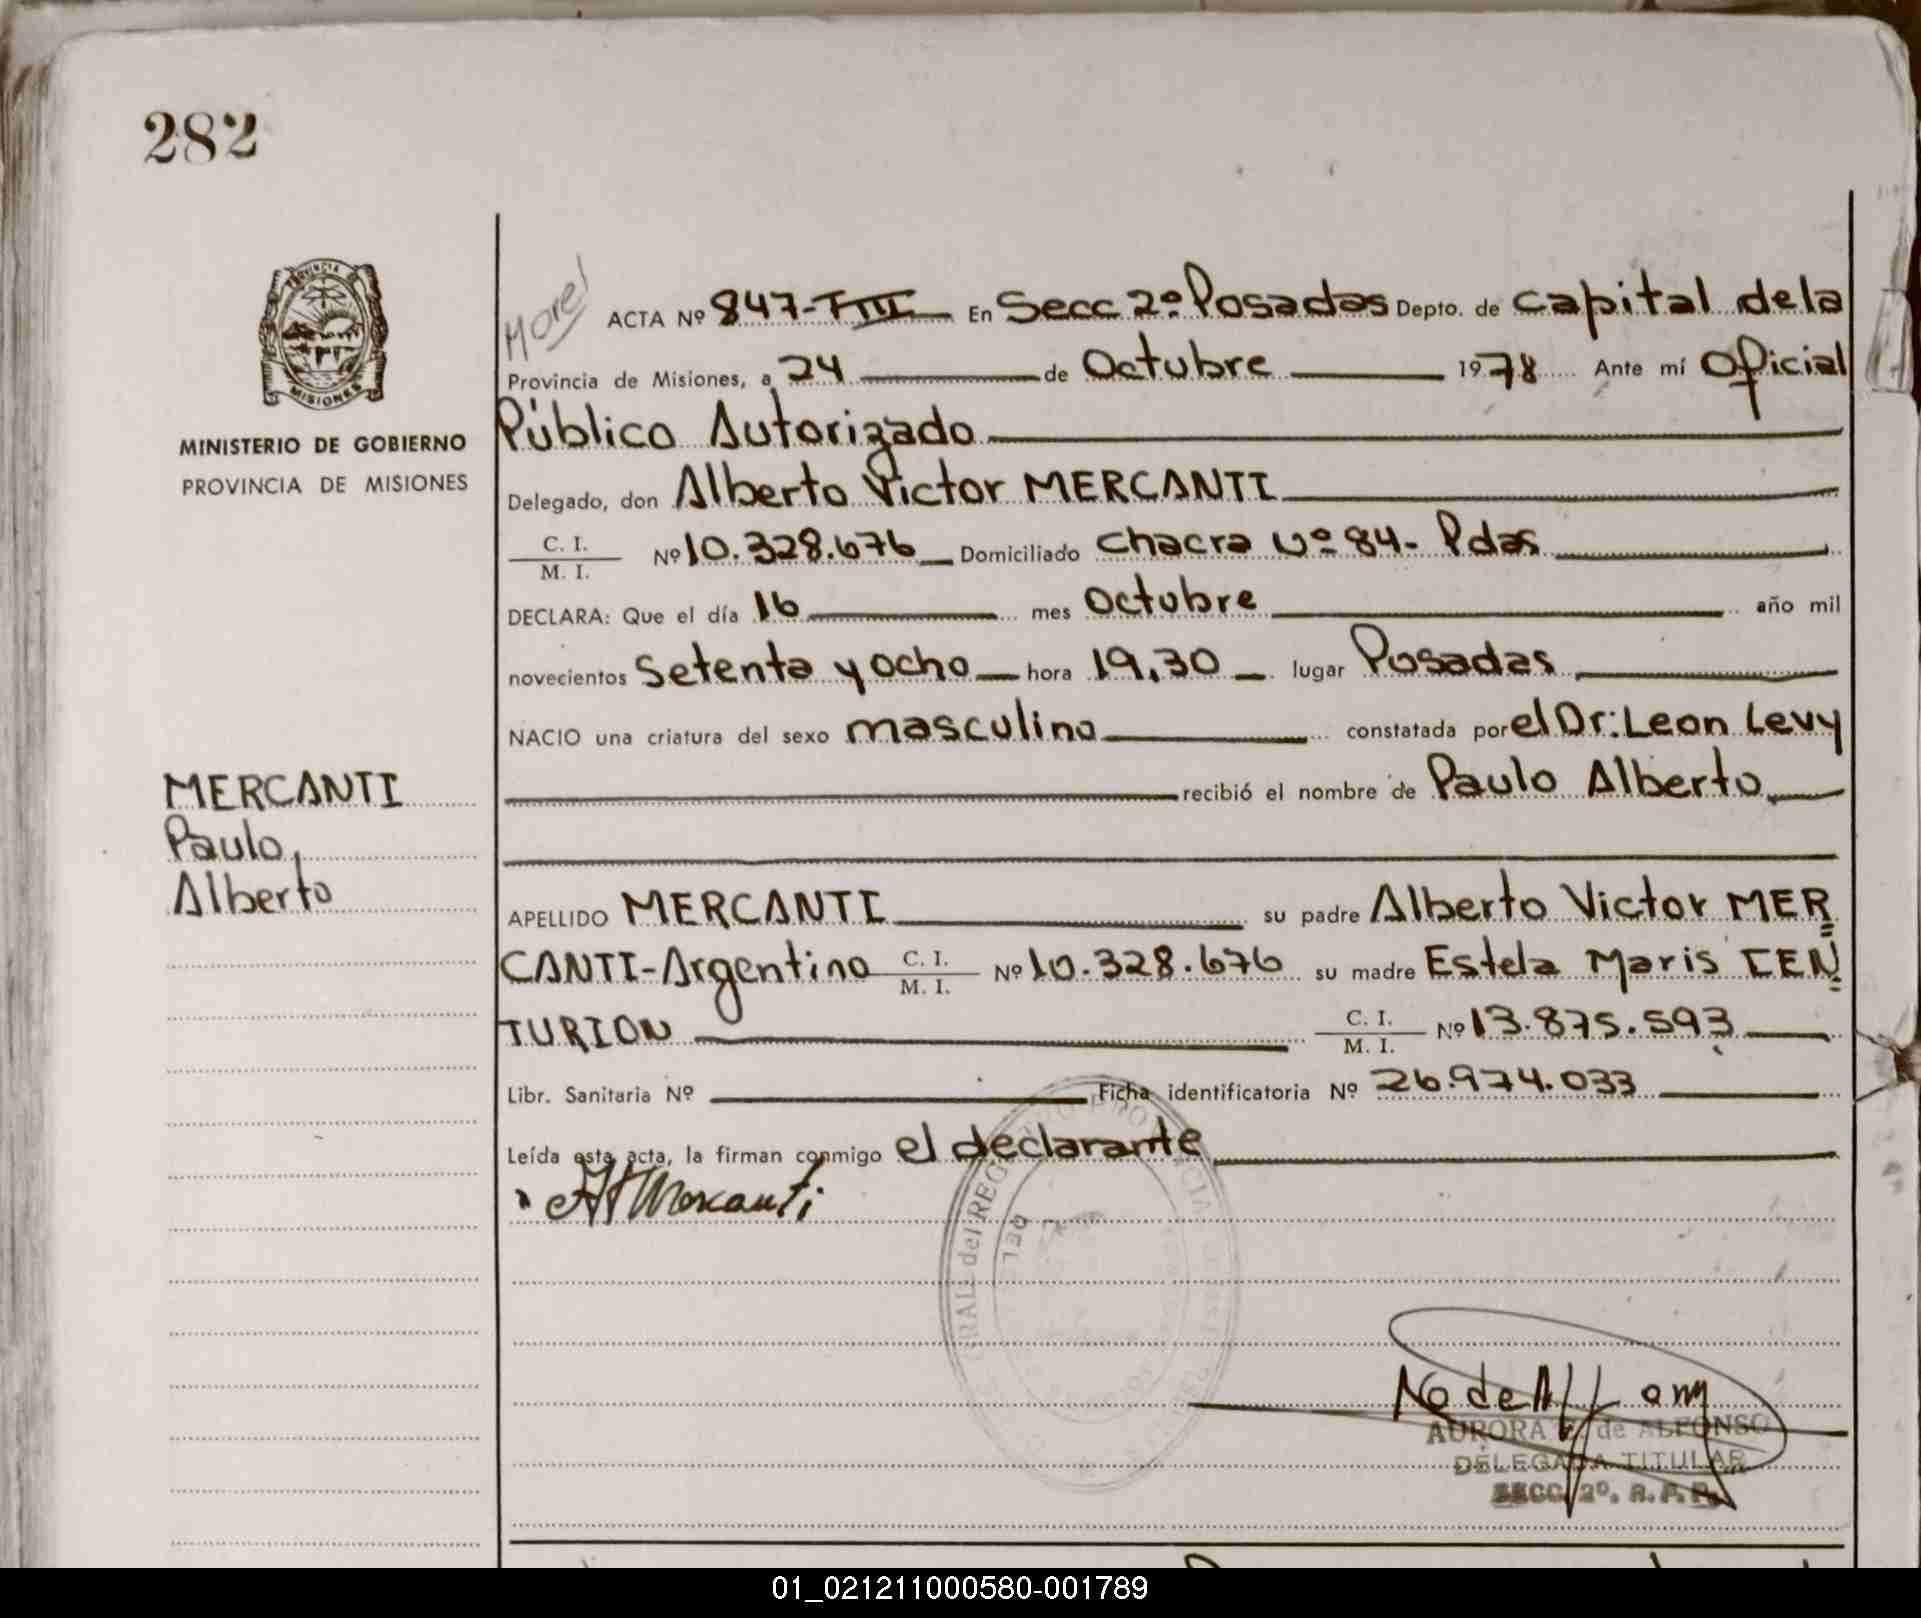 282
PROVINCIA DE
MISIONES
MINISTERIO DE GOBIERNO
PROVINCIA DE MISIONES
MERCANTI
Paulo,
Alberto
Morel
ACTA Nº 847-TIII En Secc 2º Posadas Depto. de Capital de la
Provincia de Misiones, a 24 de Octubre 1978 Ante mí Oficial
Público Autorizado
Delegado, don Alberto Victor MERCANTI
C. I.
M. I.
Nº 10.328.676 Domiciliado Chacra Nº 84- Pdas
DECLARA: Que el día 16 mes Octubre año mil
novecientos Setenta y ocho hora 19,30 lugar Posadas
NACIO una criatura del sexo masculino constatada por el Dr: Leon Levy
recibió el nombre de Paulo Alberto,
APELLIDO MERCANTI su padre Alberto Victor MER
CANTI-Argentino C. I. M. I. Nº 10.328.676 su madre Estela Maris CEN
TURION C. I. M. I. Nº 13.875.593
Libr. Sanitaria Nº Ficha identificatoria Nº 26.974.033
Leída esta acta, la firman conmigo el declarante
Mercanti
GRAL del REG
DEL
AURORA de ALFONSO
DELEGADA TITULAR
SECC. 2º. R.P.P.
01_021211000580-001789